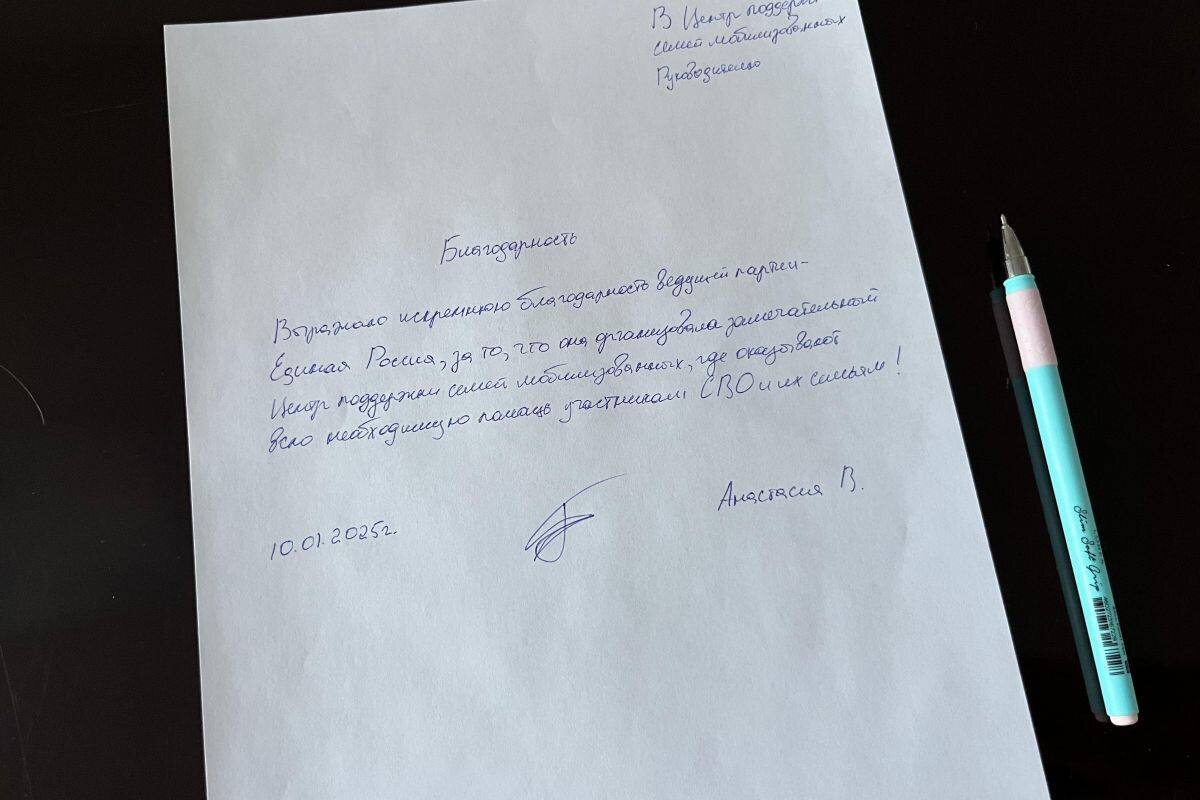 В Центр поддержки
семей мобилизованных
Руководителю
Благодарность
Выражаю искреннюю благодарность ведущей партии-
Единая Россия, за то, что она организовала замечательный
Центр поддержки семей мобилизованных, где оказывают
всю необходимую помощь участникам СВО и их семьям!
10.01.2025г.
Анастасия В.
Slim Soft Grip